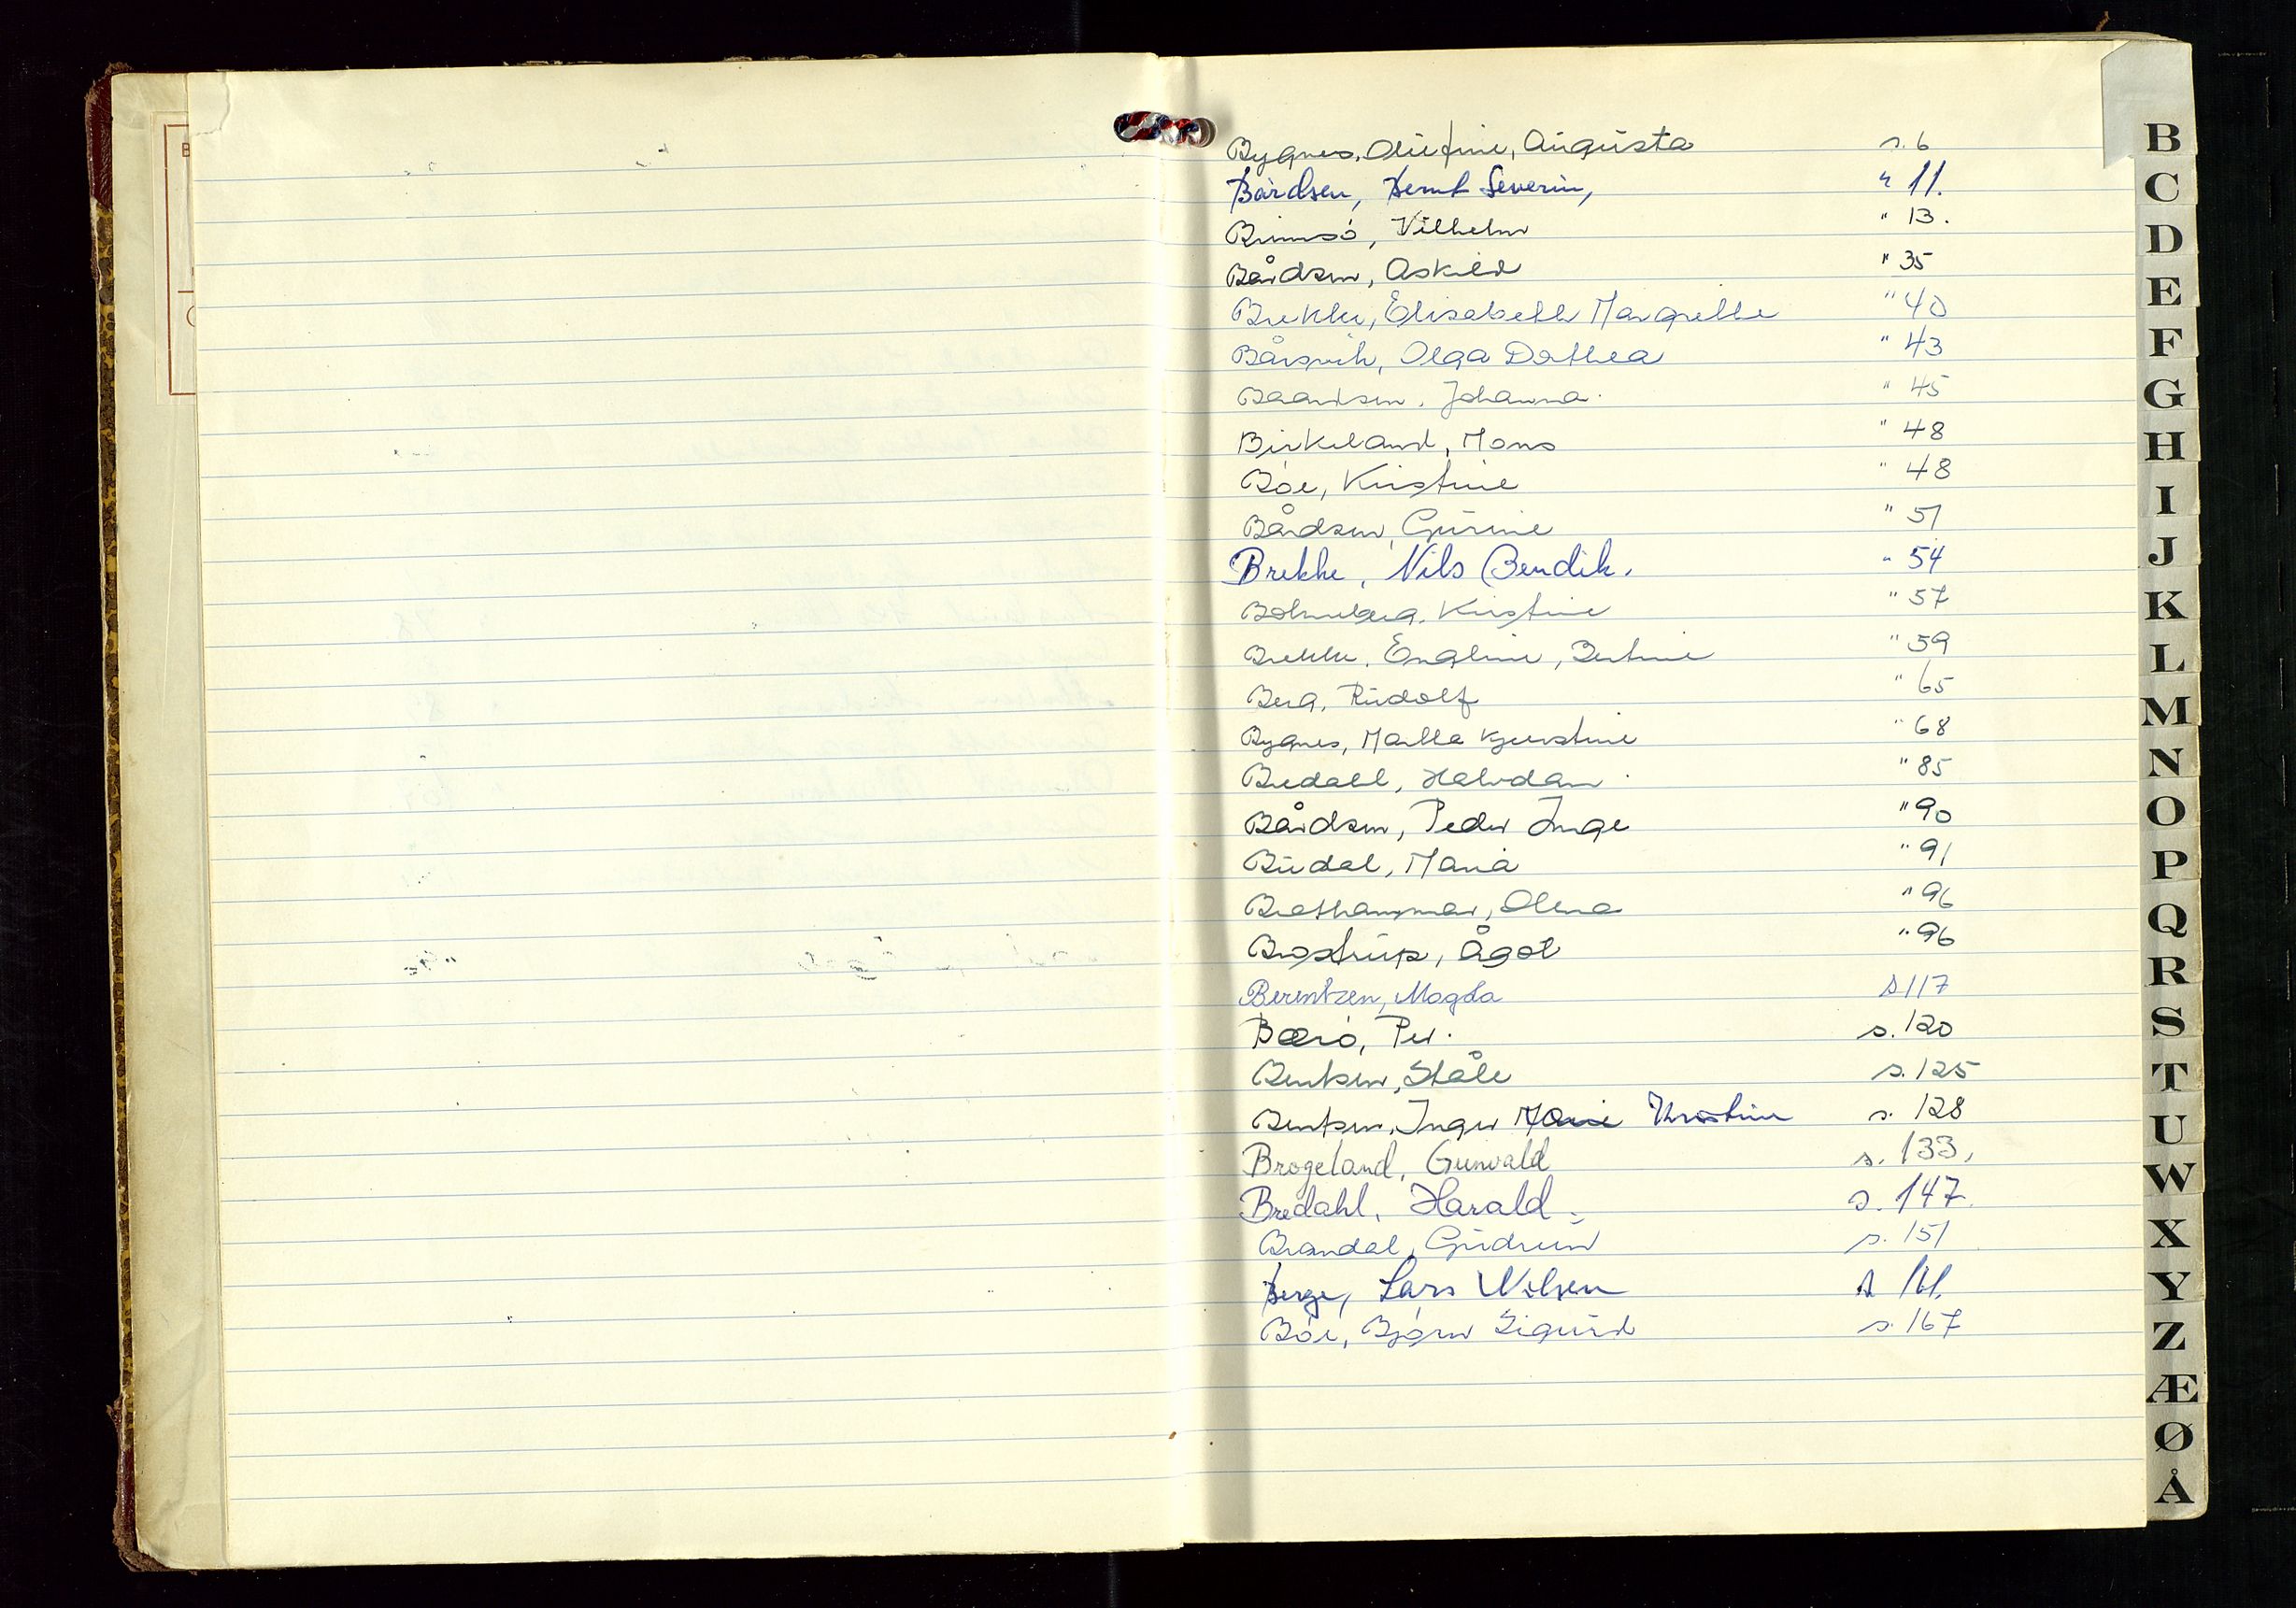 Bygnes, Olufine, Augusta s. 6
Bårdsen, Bernt Severin, " 11.
Brimsø, Vilhelm " 13.
Bårdsen, Askild " 35
Brekke, Elisabeth Margrethe " 40
Bårsvik, Olga Dorthea " 43
Baardsen, Johanna. " 45
Birkeland, Mons " 48
Bøe, Kristine " 48
Bårdsen, Gurine " 51
Brekke, Nils Bendik. " 54
Kristine " 57
Brekke, Engline, Bertine " 59
Berg, Rudolf " 65
Bygnes, Malla Kjerstine " 68
Bredahl, Halvdan " 85
Bårdsen, Peder Inge " 90
Budal, Maria " 91
Brathammer, Olena " 96
Brostrup, Ågot " 96
Berentzen, Magda s 117
Bærø, Per. s. 120
Bentsen, Ståle s. 125
Bentsen, Inger Marie Kristine s. 128
Brogeland, Gunvald s. 133,
Bredahl, Harald. s. 147.
Brandal, Gudrun s. 151
Berge, Lars Nilsen s 161.
Bøe, Bjørn Sigurd s. 167
B
C
D
E
F
G
H
I
J
K
L
M
N
O
P
Q
R
S
T
U
W
X
Y
Z
Æ
Ø
Å